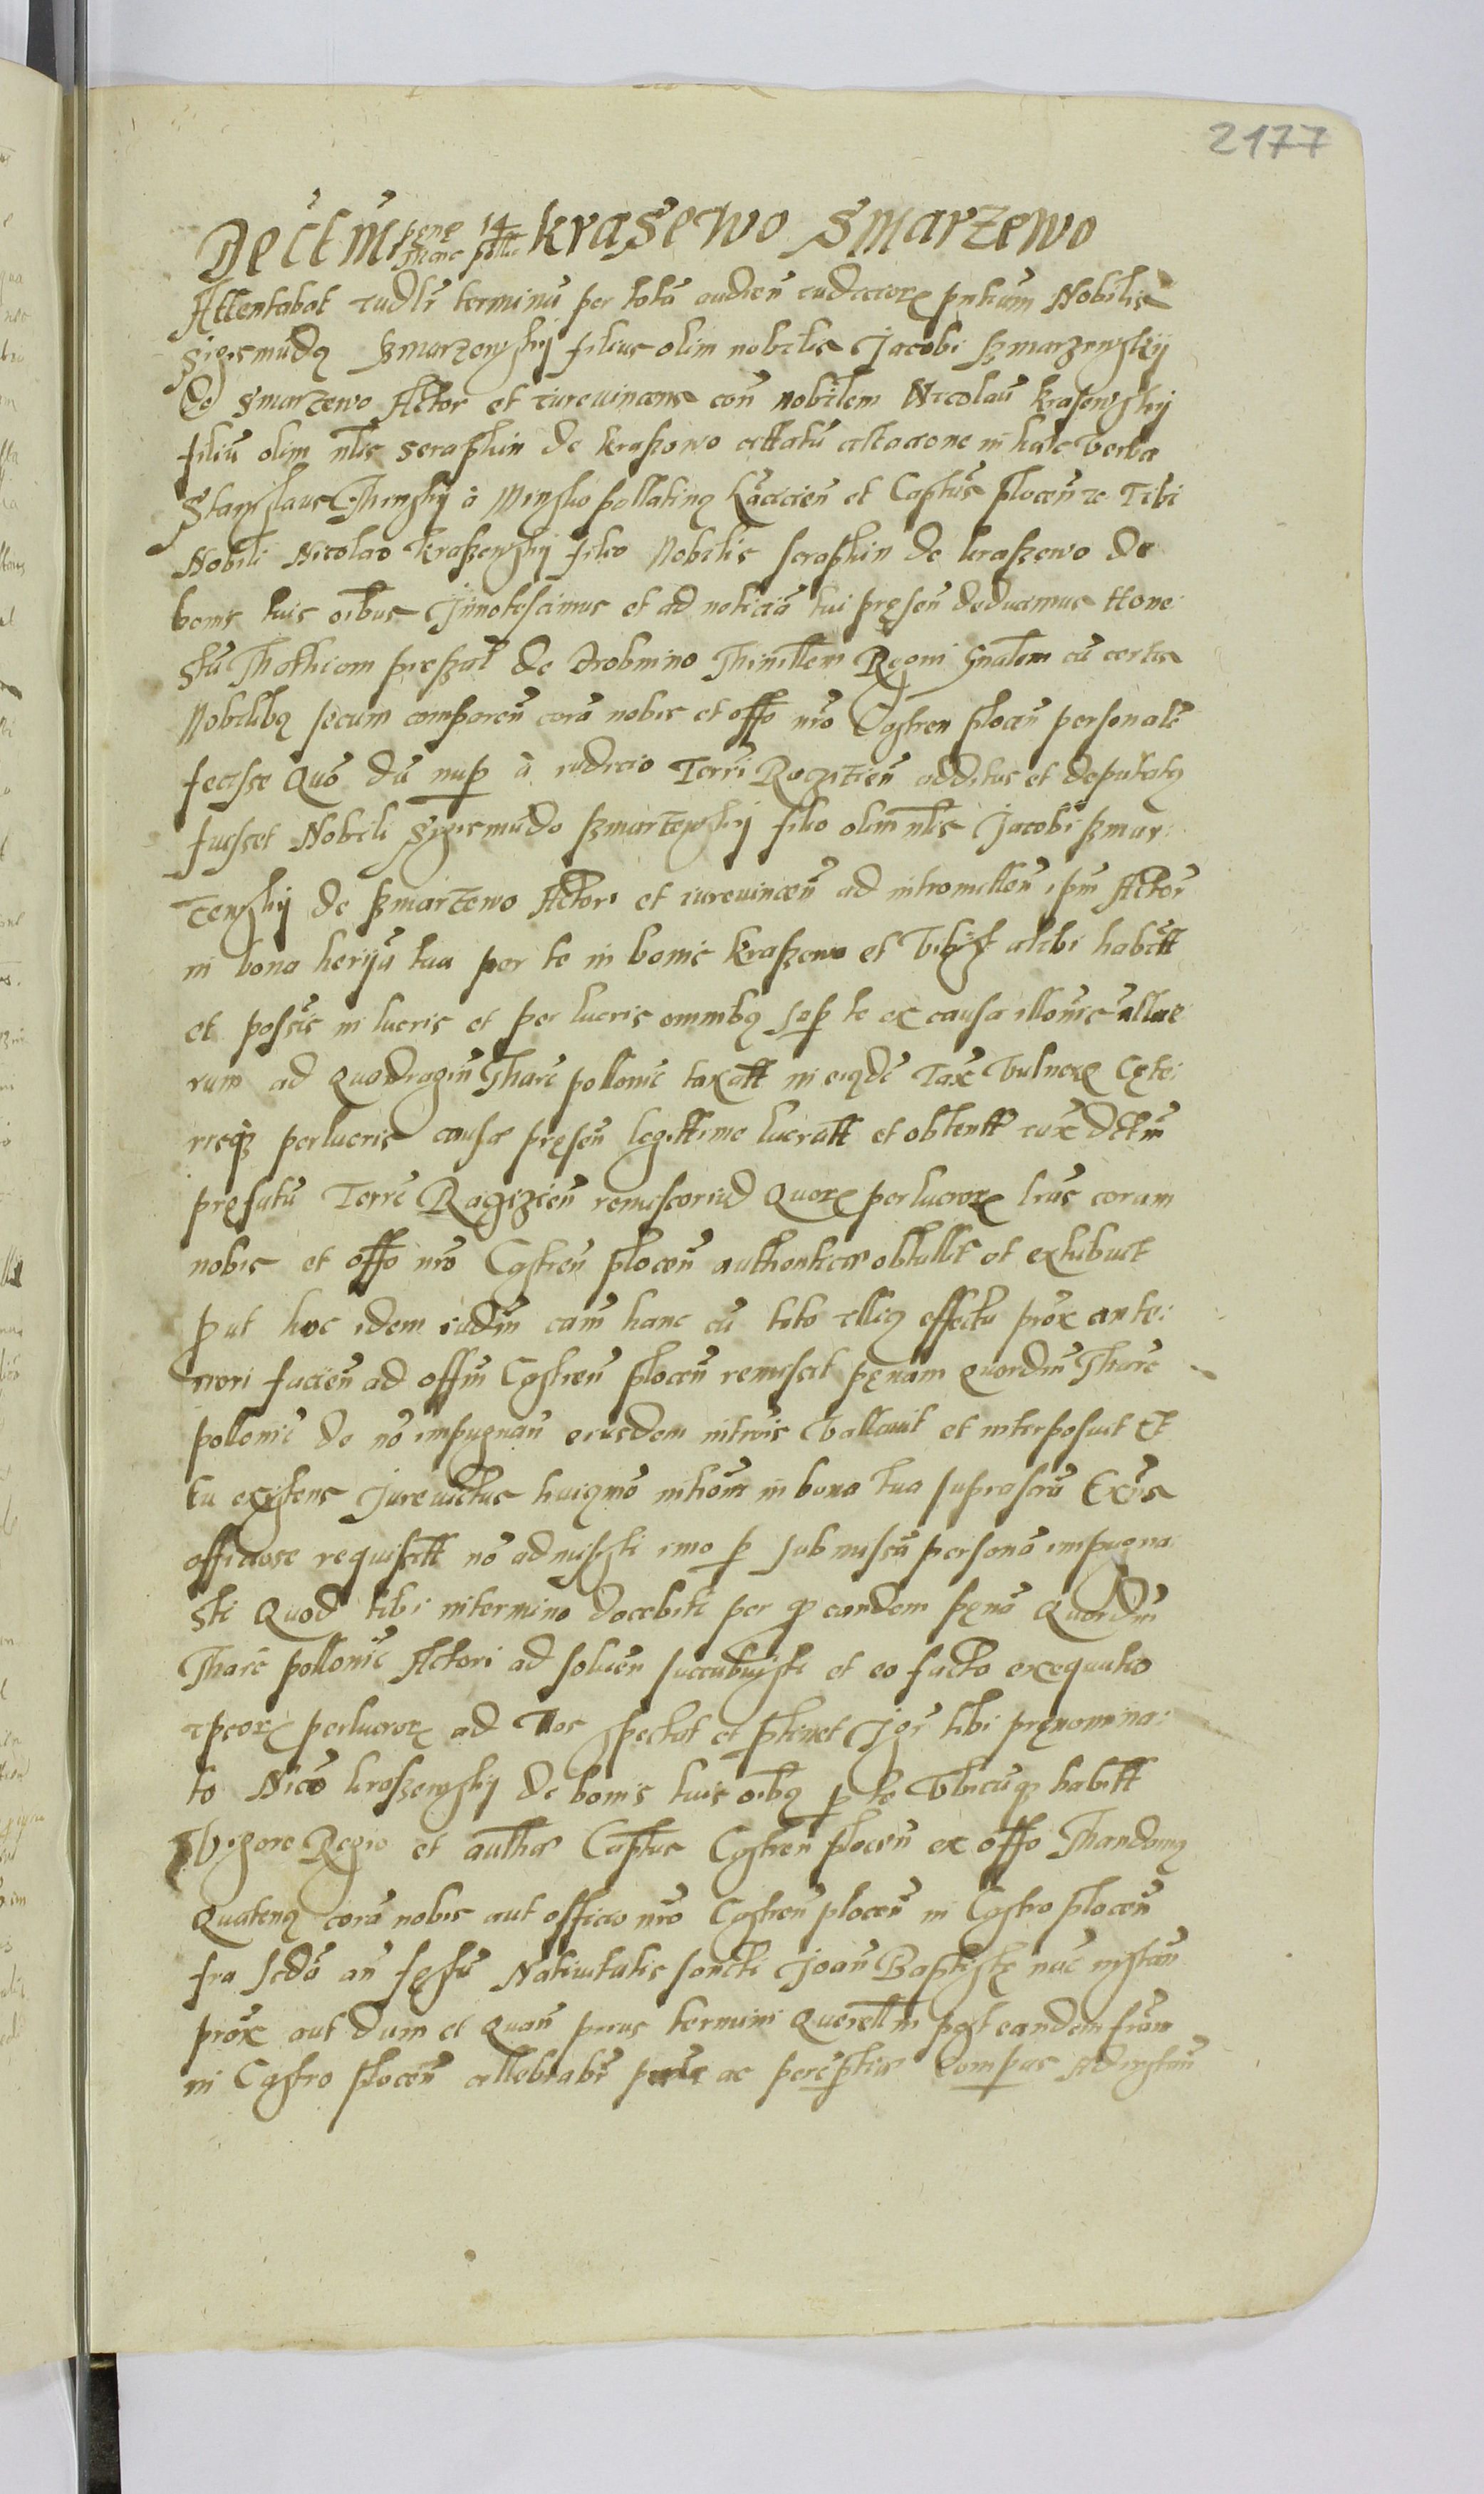 2177
Decretum pene 14 Marc poll Krasewo Smarzewo
Attentabat iudli terminu per tota audien iudiciorum pntium Nobilis
Sigismudus Smarzewskij filius olim nobilis Jacobi Smarzewskij
de Smarzewo Actor et iurevincens con nobilem Nicolau Krasewskij
filiu olim nlis Seraphin de Kraszewo cittatu cittacione in haec verba
Stanislaus Minskij à Minsko pallatinus Lācicien et Captus plocen etc Tibi
Nobili Nicolao Kraszewskij filio Nobilis Seraphin de Kraszewo de
bonis tuis oibus Innotescimus et ad noticia tui presen deducimus Hone
stu Mathiam de Drobnino Minrllem Regni Gnalem cu certis
Nobilibus secum comparen cora nobis et offo nro Castren plocen personalr
fecisse Quo du nup à iudicio Terri Raczizien additus et deputatus
fuisset Nobili Sigismudo Smarzewskij filio olim nlis Jacobi Smar
zewskij de Smarzewo Actori et iurevincen ad intromitten ipm Actore
in bona heriju tua per te in bonis Kraszewo et alibi habitt
et possis in lucris et perlucris omnibus sup te ex causa
rum ad Quadragin Marc pollonic taxatt in eiusde Tax Vulnerum Cete
risque perlucris causa presen legittime lucratt et obtentt iux Dcrtm
prefatu Terre Raczizien remissoriu Quorum perlucrorum lras coram
nobis et offo nro Castren plocen authenticas obtullit et exhibuit
put hoc idem iudm cam hanc cu toto illius effectu prox ante
riori facien ad offm Castren plocen remisit penam Quordm Marc
pollonic de no impugnan eiusdem intrōis Vallavit et interposuit Et
tu existens Jurevictus huiusmō intrōm in bona tua suprascrin Exris
officiose requisitt no admisisti imo p submissa persona impugna
sti Quod tibi in termino docebitr per quod eandem pena Quordm
Marc pollonic Actori ad solven succubuisti et eo facto exequutio
ipsorum perlucrorum ad Nos spectat et ptinet Igr tibi prenomina
to Nico Kraszewskij de bonis tuis oibus p te Ubicuque habitt
Vigore Regio et autha Captus Castren plocen ex offo Mandamus
Quatenus cora nobis aut officio nro Castren plocen in Castro plocen
fra scda an festu Nativitatis sancti Joan Baptiste nuc instan
prox aut dum et Quan prius termini Querellm post eandem fram
in Castro plocen cellebrabr ac Compas Ad instan